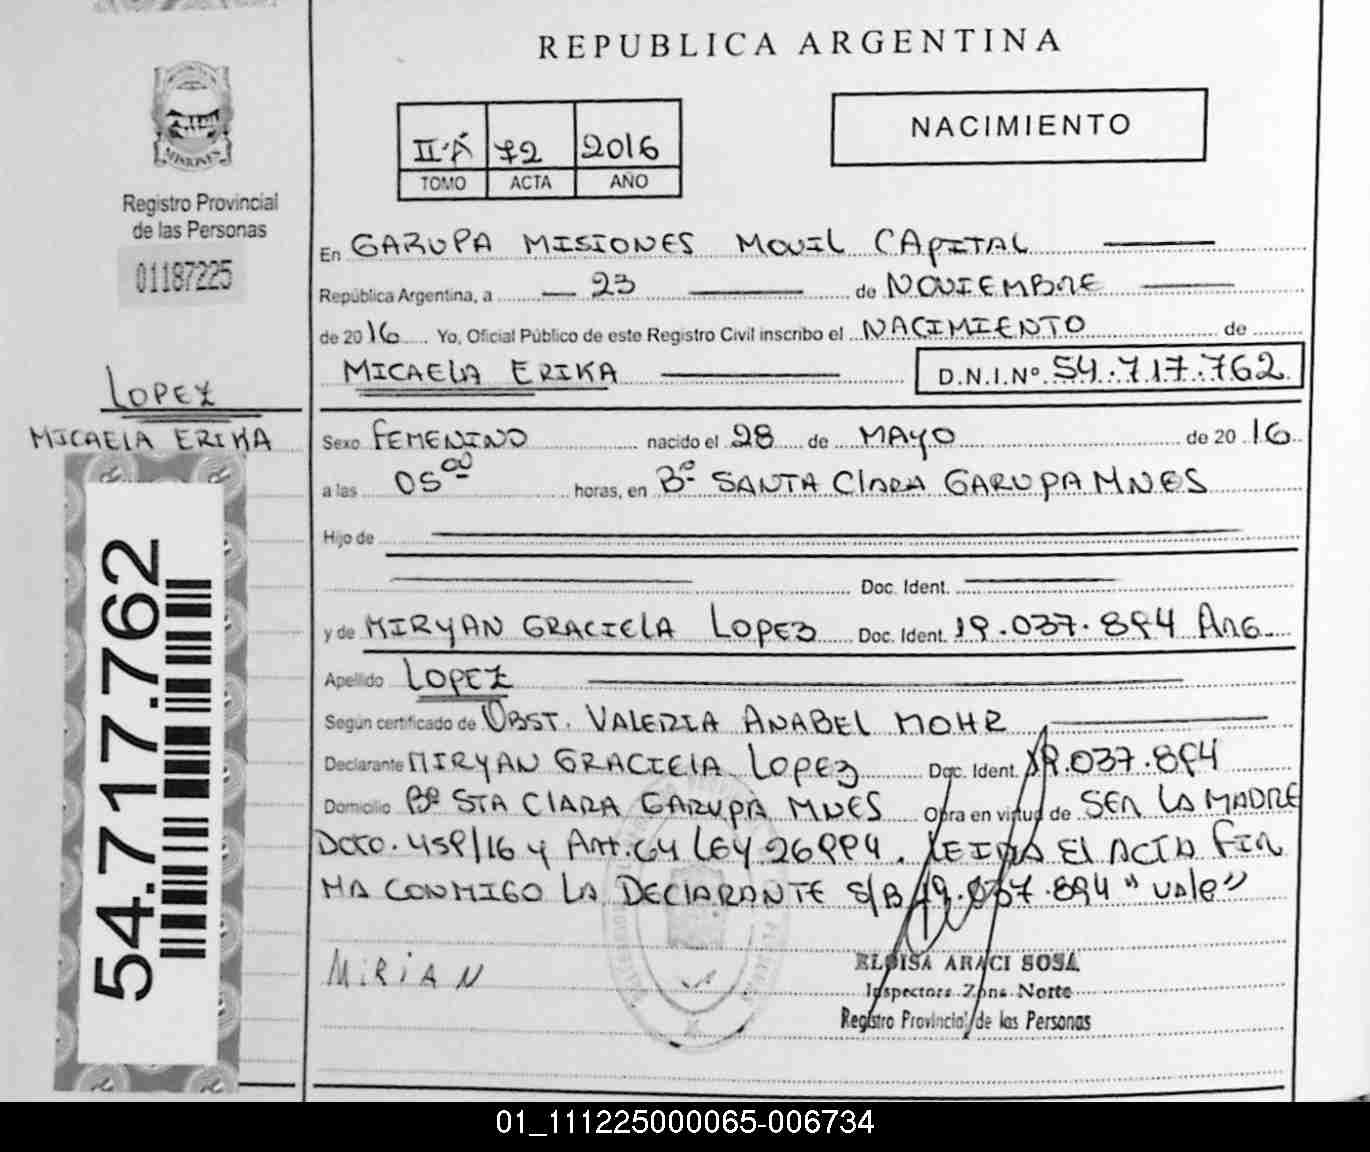 REPUBLICA ARGENTINA
NACIMIENTO
II·A 72 2016
TOMO ACTA AÑO
MISIONES
Registro Provincial
de las Personas
01187225
LOPEZ
MICAELA ERIKA
54.717.762
En GARUPA MISIONES MOVIL CAPITAL
República Argentina, a 23 de NOVIEMBRE
de 2016 Yo, Oficial Público de este Registro Civil inscribo el NACIMIENTO de
MICAELA ERIKA D.N.I.Nº. 54.717.762
Sexo FEMENINO nacido el 28 de MAYO de 2016
a las 05⁰⁰ horas, en Bº SANTA CLARA GARUPA MNES
Hijo de
Doc. Ident.
y de MIRYAN GRACIELA LOPEZ Doc. Ident. 19.037.894 ARG
Apellido LOPEZ
Según certificado de OBST. VALERIA ANABEL MOHR
Declarante MIRYAN GRACIELA LOPEZ Doc. Ident. 19.037.894
Domicilio Bº STA CLARA GARUPA MNES Obra en virtud de SER LA MADRE
DCTO. 459/16 y Art. 64 LEY 26994. LEIDA El ACTA FIR
MA CONMIGO LA DECLARANTE S/B 19.037.894 "Vale"
MiRiAN
ELOISA ARACI SOSA
Inspectora Zona Norte
Registro Provincial de las Personas
01_111225000065-006734